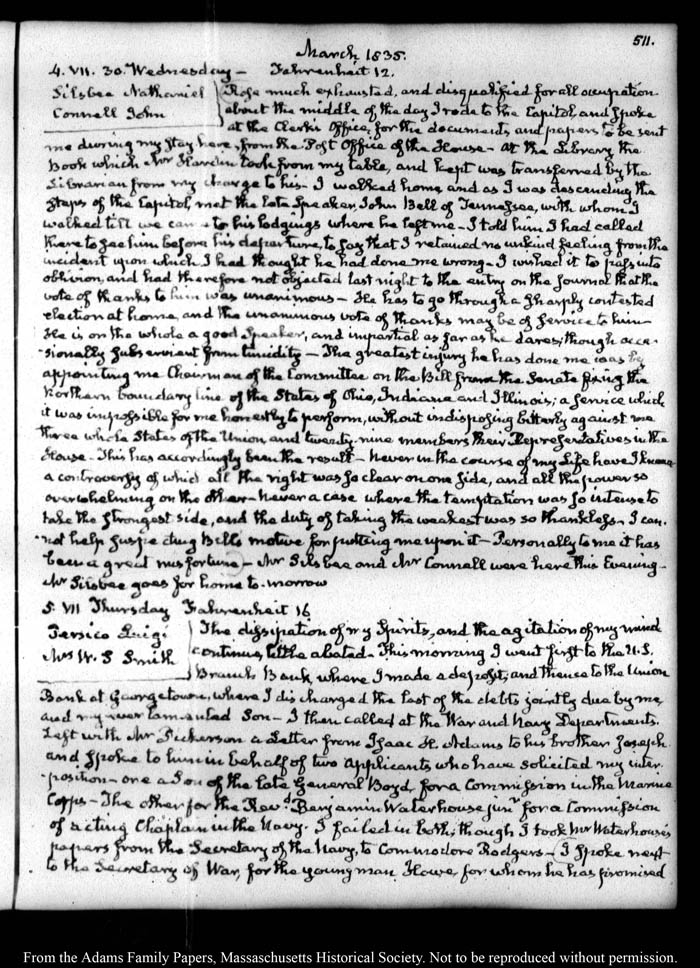 511.
March 1835.
4. VII. 30. Wednesday — Fahrenheit 12.
Silsbee Nathaniel
Connell John
Rose much exhausted, and disqualified for all occupation
about the middle of the day I rode to the Capitol, and spoke
at the Clerk's Office, for the documents, and papers to be sent
me during my stay here, from the Post Office of the House — At the Library the
Book which Mr Hardin took from my table, and kept was transferred by the
Librarian from my charge to his — I walked home, and as I was descending the
steps of the Capitol, met the late Speaker, John Bell of Tennessee, with whom I
walked till we came to his lodgings where he left me — I told him I had called
there to see him before his departure, to say that I retained no unkind feeling from the
incident upon which I had thought he had done me wrong — I wished it to pass into
oblivion, and had therefore not objected last night to the entry on the Journal that the
vote of thanks to him was unanimous — He has to go through a sharply contested
election at home, and the unanimous vote of thanks may be of service to him —
He is on the whole a good Speaker, and impartial as far as he dares, though occa-
-sionally subservient from timidity — The greatest injury he has done me was by
appointing me Chairman of the Committee on the Bill from the Senate fixing the
Northern boundary line of the States of Ohio, Indiana and Illinois; a service which
it was impossible for me honestly to perform, without indisposing bitterly against me
three whole States of the Union, and twenty-nine members their Representatives in the
House — This has accordingly been the result — Never in the course of my Life have I known
a controversy of which all the right was so clear on one side, and all the power so
overwhelming on the other — Never a case where the temptation was so intense to
take the strongest side, and the duty of taking the weakest was so thankless — I can-
-not help suspecting Bell's motive for putting me upon it — Personally to me it has
been a great misfortune — Mr Silsbee and Mr Connell were here this Evening —
Mr Silsbee goes for home to-morrow
5. VII Thursday Fahrenheit 16
Persico Luigi
Mrs W. S Smith
The dissipation of my Spirits, and the agitation of my mind
continue, little abated — This morning I went first to the U.S.
Branch Bank, where I made a deposit, and thence to the Union
Bank at Georgetown, where I discharged the last of the debts jointly due by me,
and my ever lamented Son — I then called at the War and Navy Departments.
Left with Mr Dickerson a Letter from Isaac H. Adams to his brother Joseph
and spoke to him in behalf of two applicants who have solicited my inter-
-position — one a Son of the late General Boyd, for a Commission in the Marine
Corps — The other for the Revd Benjamin Waterhouse junr for a Commission
of acting Chaplain in the Navy. I failed in both, though I took Mr Waterhouse's
papers from the Secretary of the Navy, to Commodore Rodgers — I spoke next
to the Secretary of War, for the young man Howe, for whom he has promised
From the Adams Family Papers, Massachusetts Historical Society. Not to be reproduced without permission.